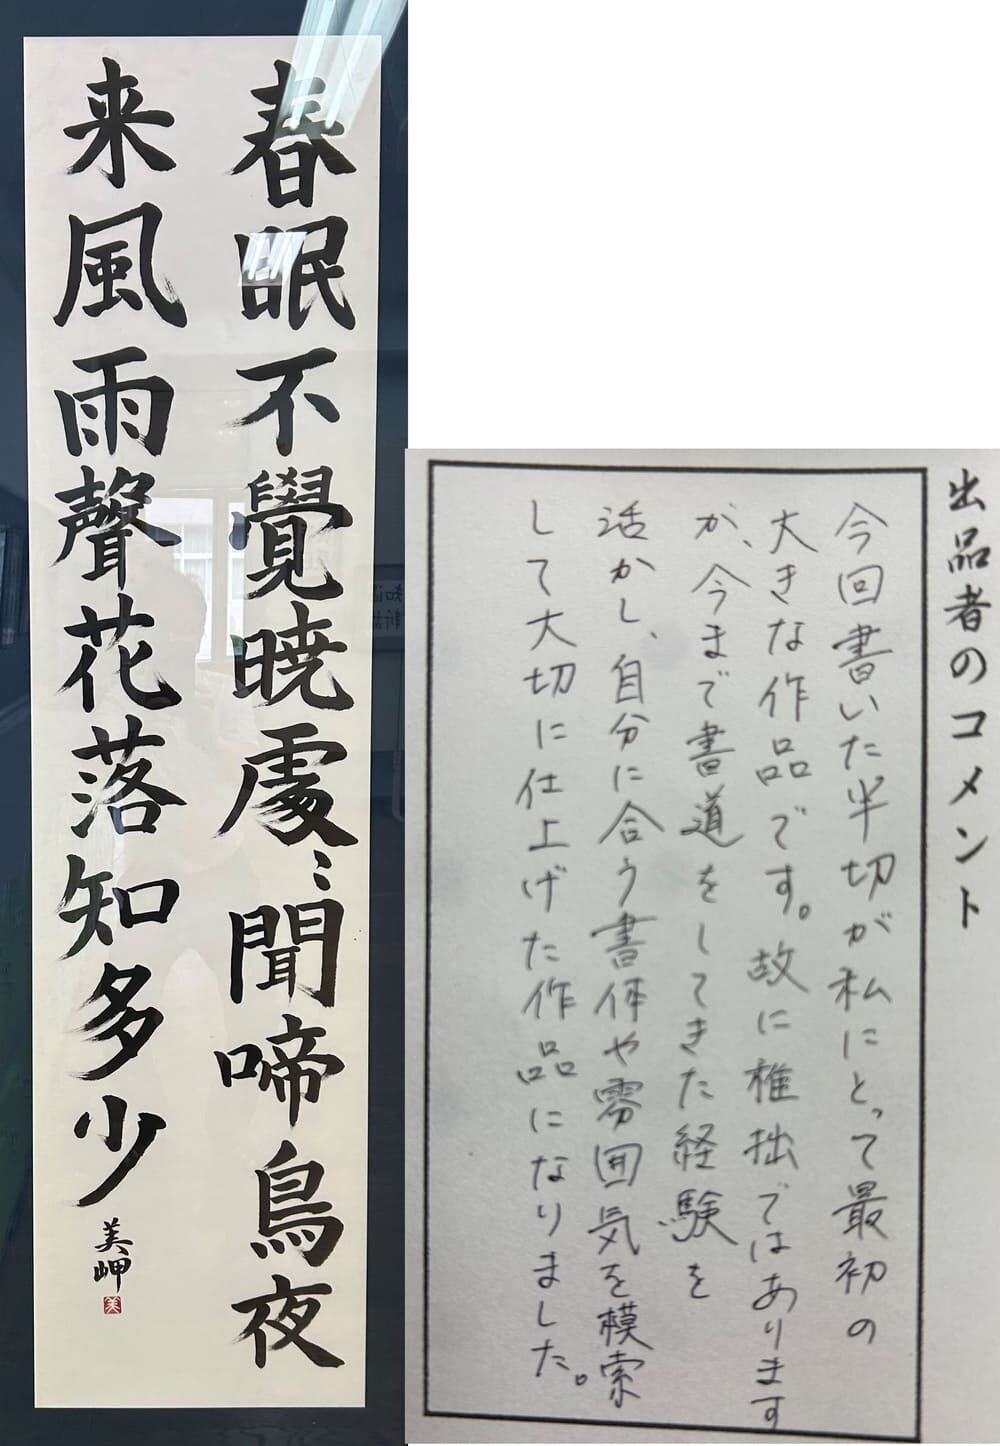 春眠不覺暁處〻聞啼鳥夜
来風雨聲花落知多少
美岬
美
出品者のコメント
今回書いた半切が私にとって最初の
大きな作品です。故に稚拙ではあります
が、今まで書道をしてきた経験を
活かし、自分に合う書体や雰囲気を模索
して大切に仕上げた作品になりました。